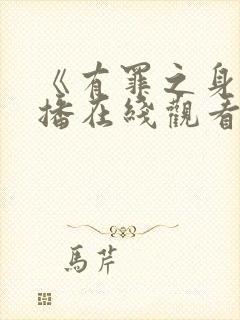 《有罪之身
播在綫觀看
馬芹